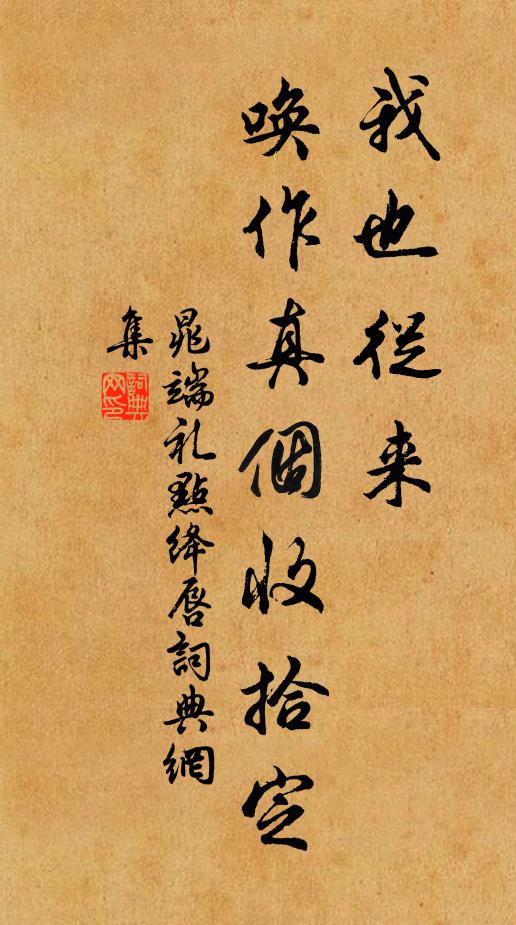 我也從来
喚作真個收拾定
晁端礼點绛唇詞典網
集
詞典
网印